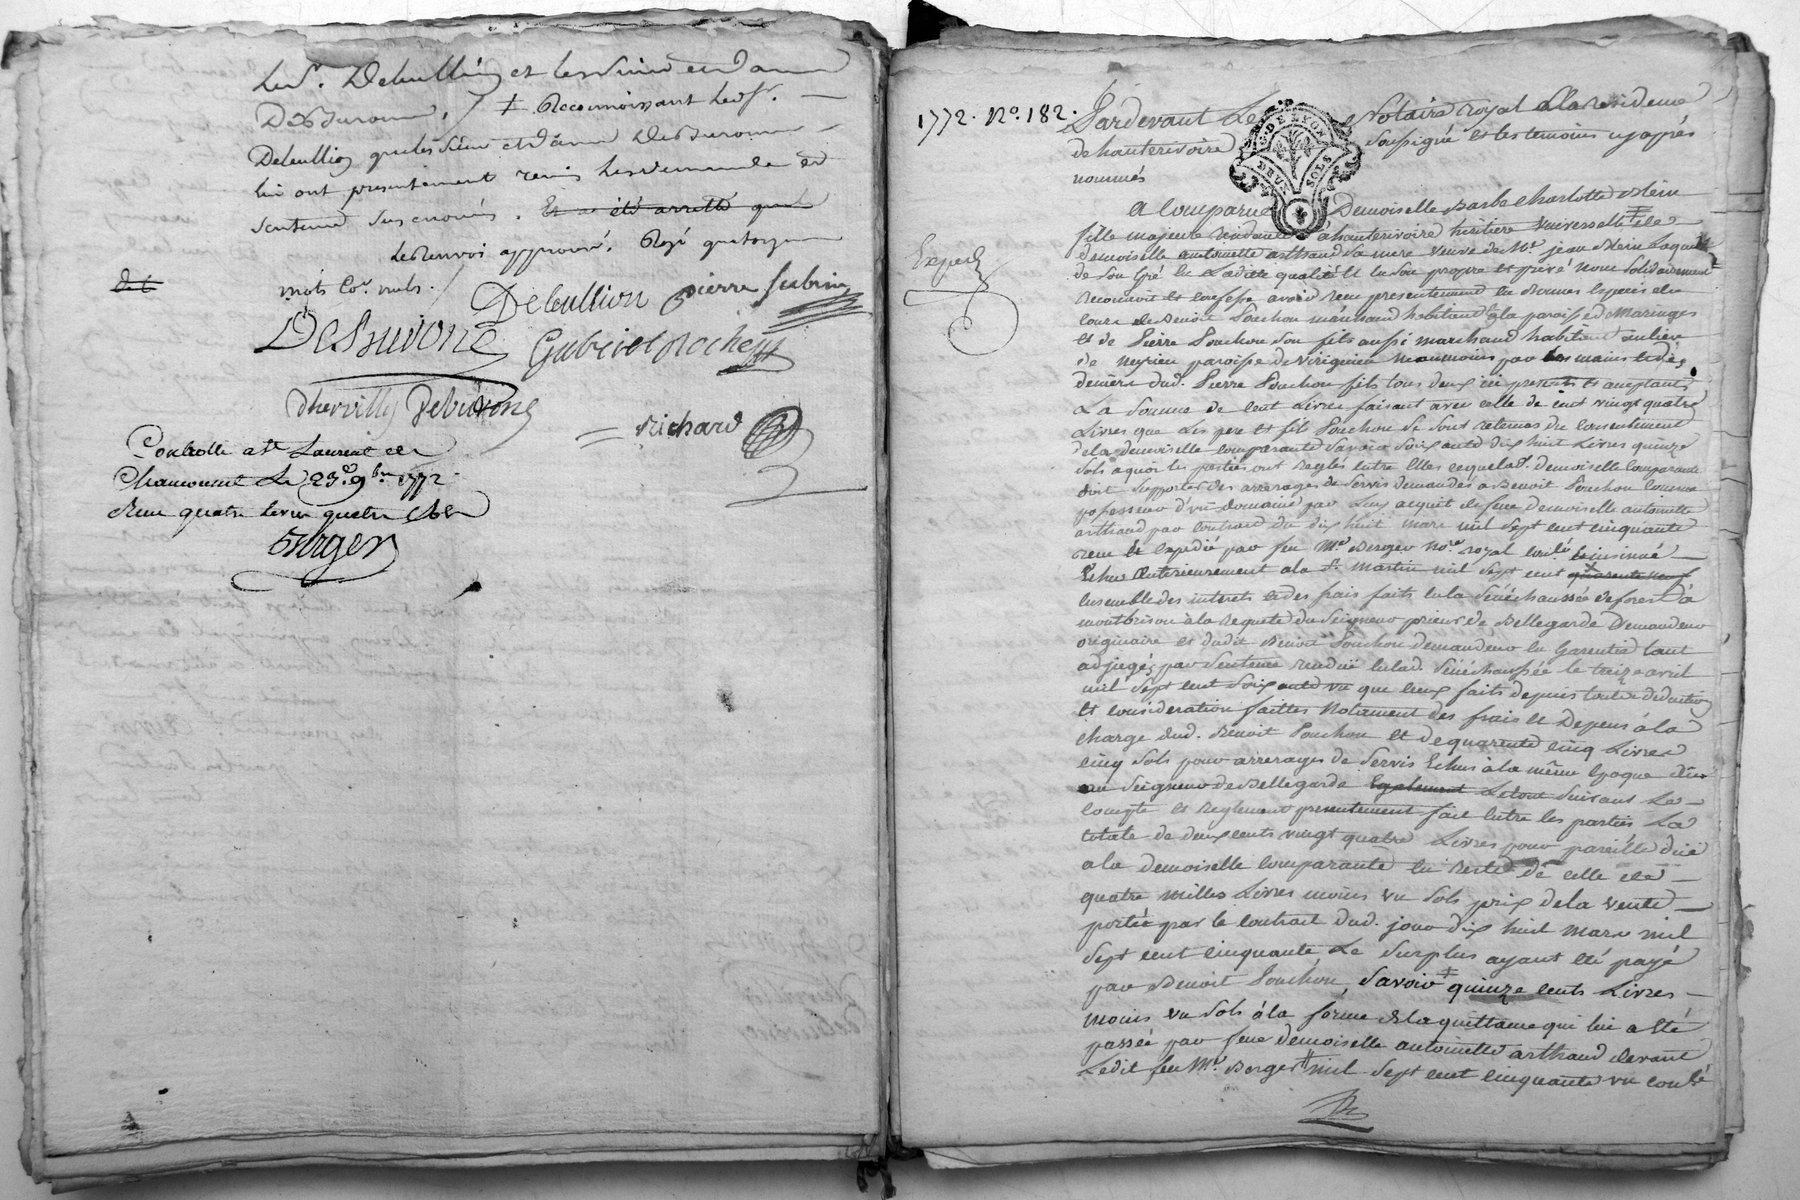 Led. Sr. Debullion et lesd. sieur et dame
Desburonne. / ‡ Reconnoissant led. Sr.
Debullion que les sieur et dame Desburonne
lui ont presentement remis les demande et
sentence susenoncés. Et a été arretté que
Le Renvoi approuvé. Rayé quatorze
mots com. nuls. /
Debullion pierre subrin
DeSburonne Gabriel Rochery
dhervilly Deburonne
Richard
Controllé a St. Laurent de
Chamousset Le 23e. 9bre 1772
Reçu quatre livres quatre sols
Berger
1772. No. 182.
Pardevant Le Notaire royal a la residence
de hauterivoire soussigné et les temoins cy après
nommés
G. DE LYON
DEUX SOLS
Exped.
a Comparue Demoiselle Barbe Charlotte
fille majeure residante a hauterivoire héritière universelle de
demoiselle antoinette arthaud sa mere veuve de Mr. jean Laquelle
de son gré en Ladite qualité et en son propre et privé nom solidairement
reconnoit et confesse avoir reçu presentement en bonnes especes de
cours de Benoit Pouchon marchand habitant a la paroisse de Maringes
et de Pierre Pouchon son fils aussi marchand habitant au lieu
de meyrieu paroisse de Viriginieu neanmoins par les mains et des
deniers dud. Pierre Pouchon fils tous deux ici presents et acceptants
La somme de cent Livres faisant avec celle de cent vingt quatre
Livres que les pere et fils Pouchon se sont retenus du consentement
de la demoiselle comparante savoir soixante dix huit Livres quinze
sols a quoi les parties ont reglés entre elles ce que lad. demoiselle comparante
doit supporter des arrerages de servis demandés a Benoit Pouchon comme
possesseur d'un domaine par lui acquit de feue demoiselle antoinette
arthaud par contract du dix huit mars mil sept cent cinquante
reçu et expedié par feu Me. Berger nore. royal contlé. et insinué
Echus anterieurement a la St. Martin mil sept cent quarante neuf
Ensemble des interets et des frais faits en la Sénéchaussée de forest a
montbrison a la requete du Seigneur prieur de Bellegarde Demandeur
originaire et dudit Benoit Pouchon demandeur en Garentie tant
adjugés par sentence rendue en lad. Sénéchaussée le treize avril
mil sept cent soixante un que ceux faits depuis toutte deduction
et consideration faittes Notament des frais et Depens à la
charge dud. Benoit Pouchon et de quarente cinq Livres
cinq sols pour arrerages de servis Echus à la même époque dûs
au Seigneur de Bellegarde Egalement Le tout suivant Le
compte et reglement presentement fait entre les parties La
totale de deux cents vingt quatre Livres pour pareille due
a la demoiselle comparante en reste de celle de
quatre milles Livres moins un sols prix de la vente
portée par le contract dud. jour dix huit mars mil
sept cent cinquante Le surplus ayant été payé
par Benoit Pouchon, Savoir ‡ quinze cents Livres
moins un sols à la forme de la quittance qui lui a été
passée par feue demoiselle antoinette arthaud devant
Ledit feu Me. Berger mil sept cent cinquante un conlé